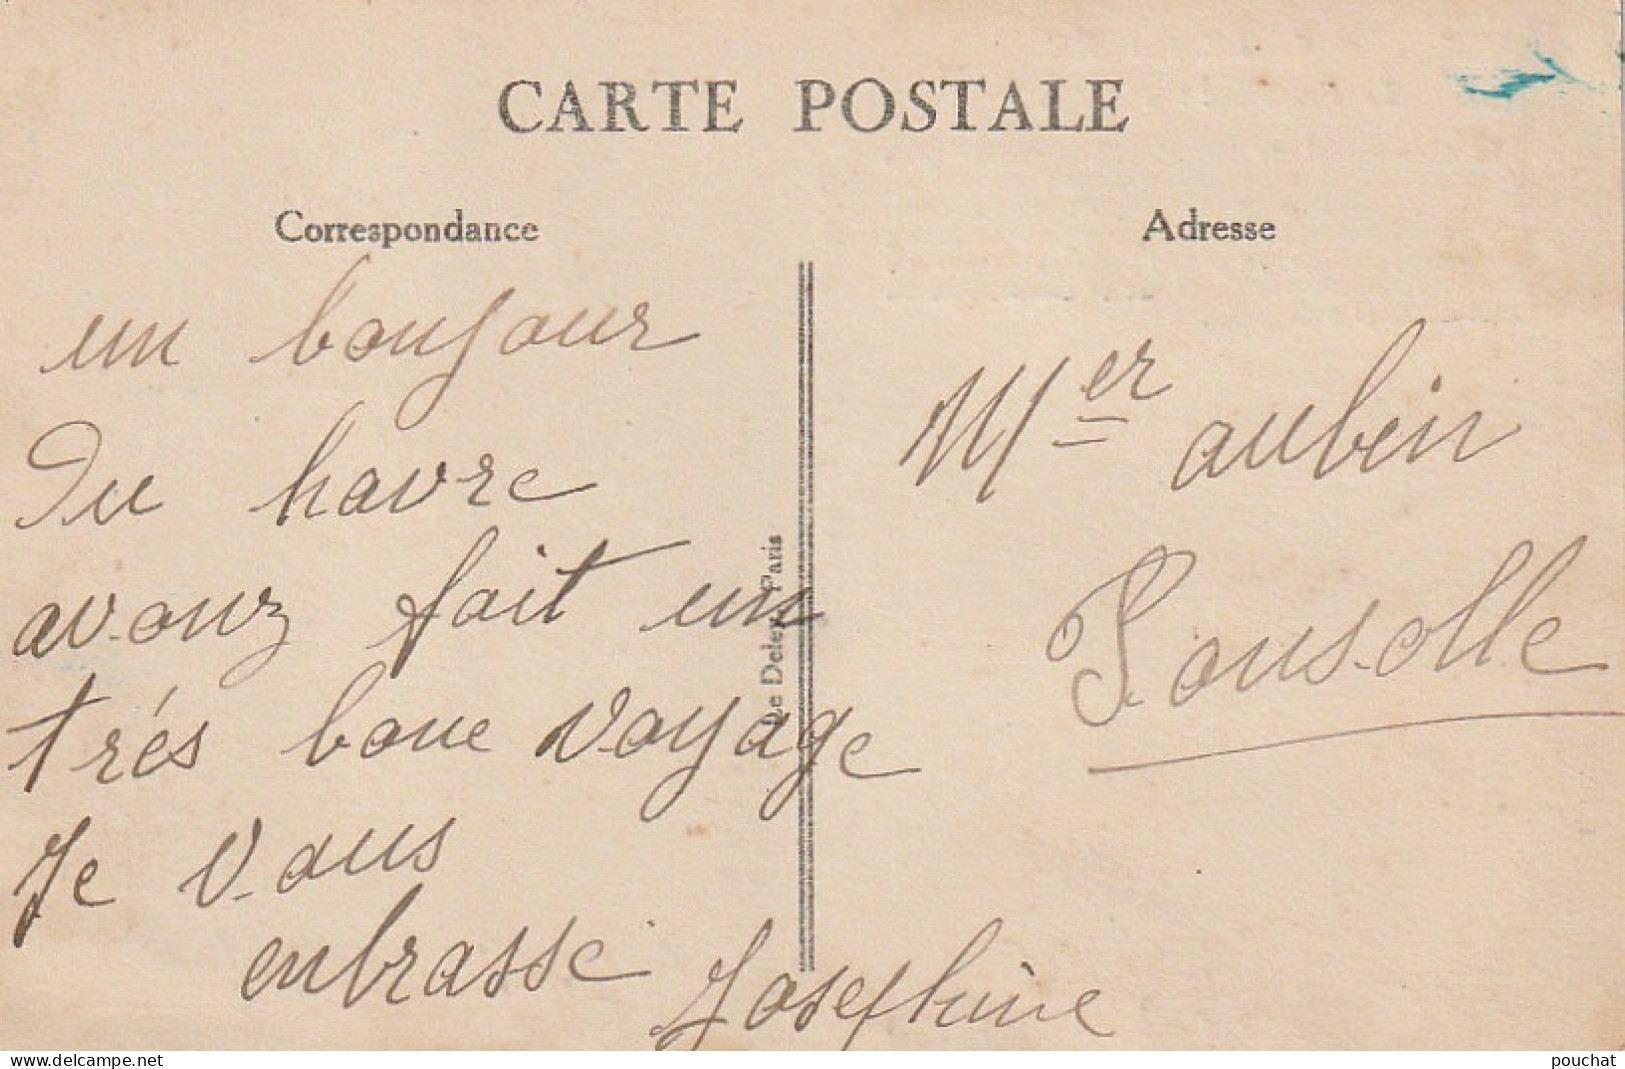 CARTE POSTALE
Correspondance
un bonjour
Du havre
avonz fait un
trés bone voyage
Je vous
enbrasse Josephine
Le Deley, Paris
Adresse
Mer aubin
Pousolle
www.delcampe.net
pouchat